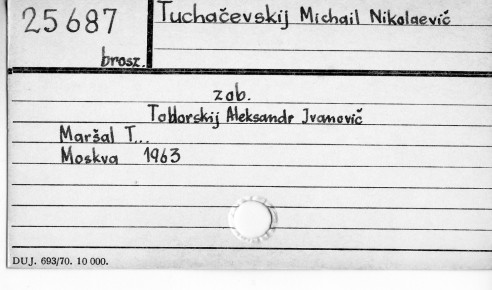 25687
Tuchačevskij Michail Nikolaevič
brosz.
zob.
Todorskij Aleksandr Ivanovič
Maršal T...
Moskva 1963
DUJ. 693/70. 10 000.